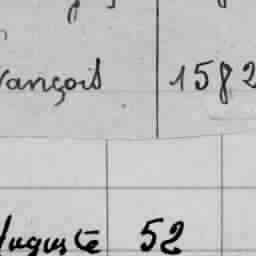 rançois 1582
Auguste 52